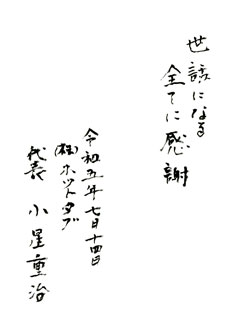 世話になる
全てに感謝
令和五年七月十四日
(株)ホットタブ
代表 小星重治